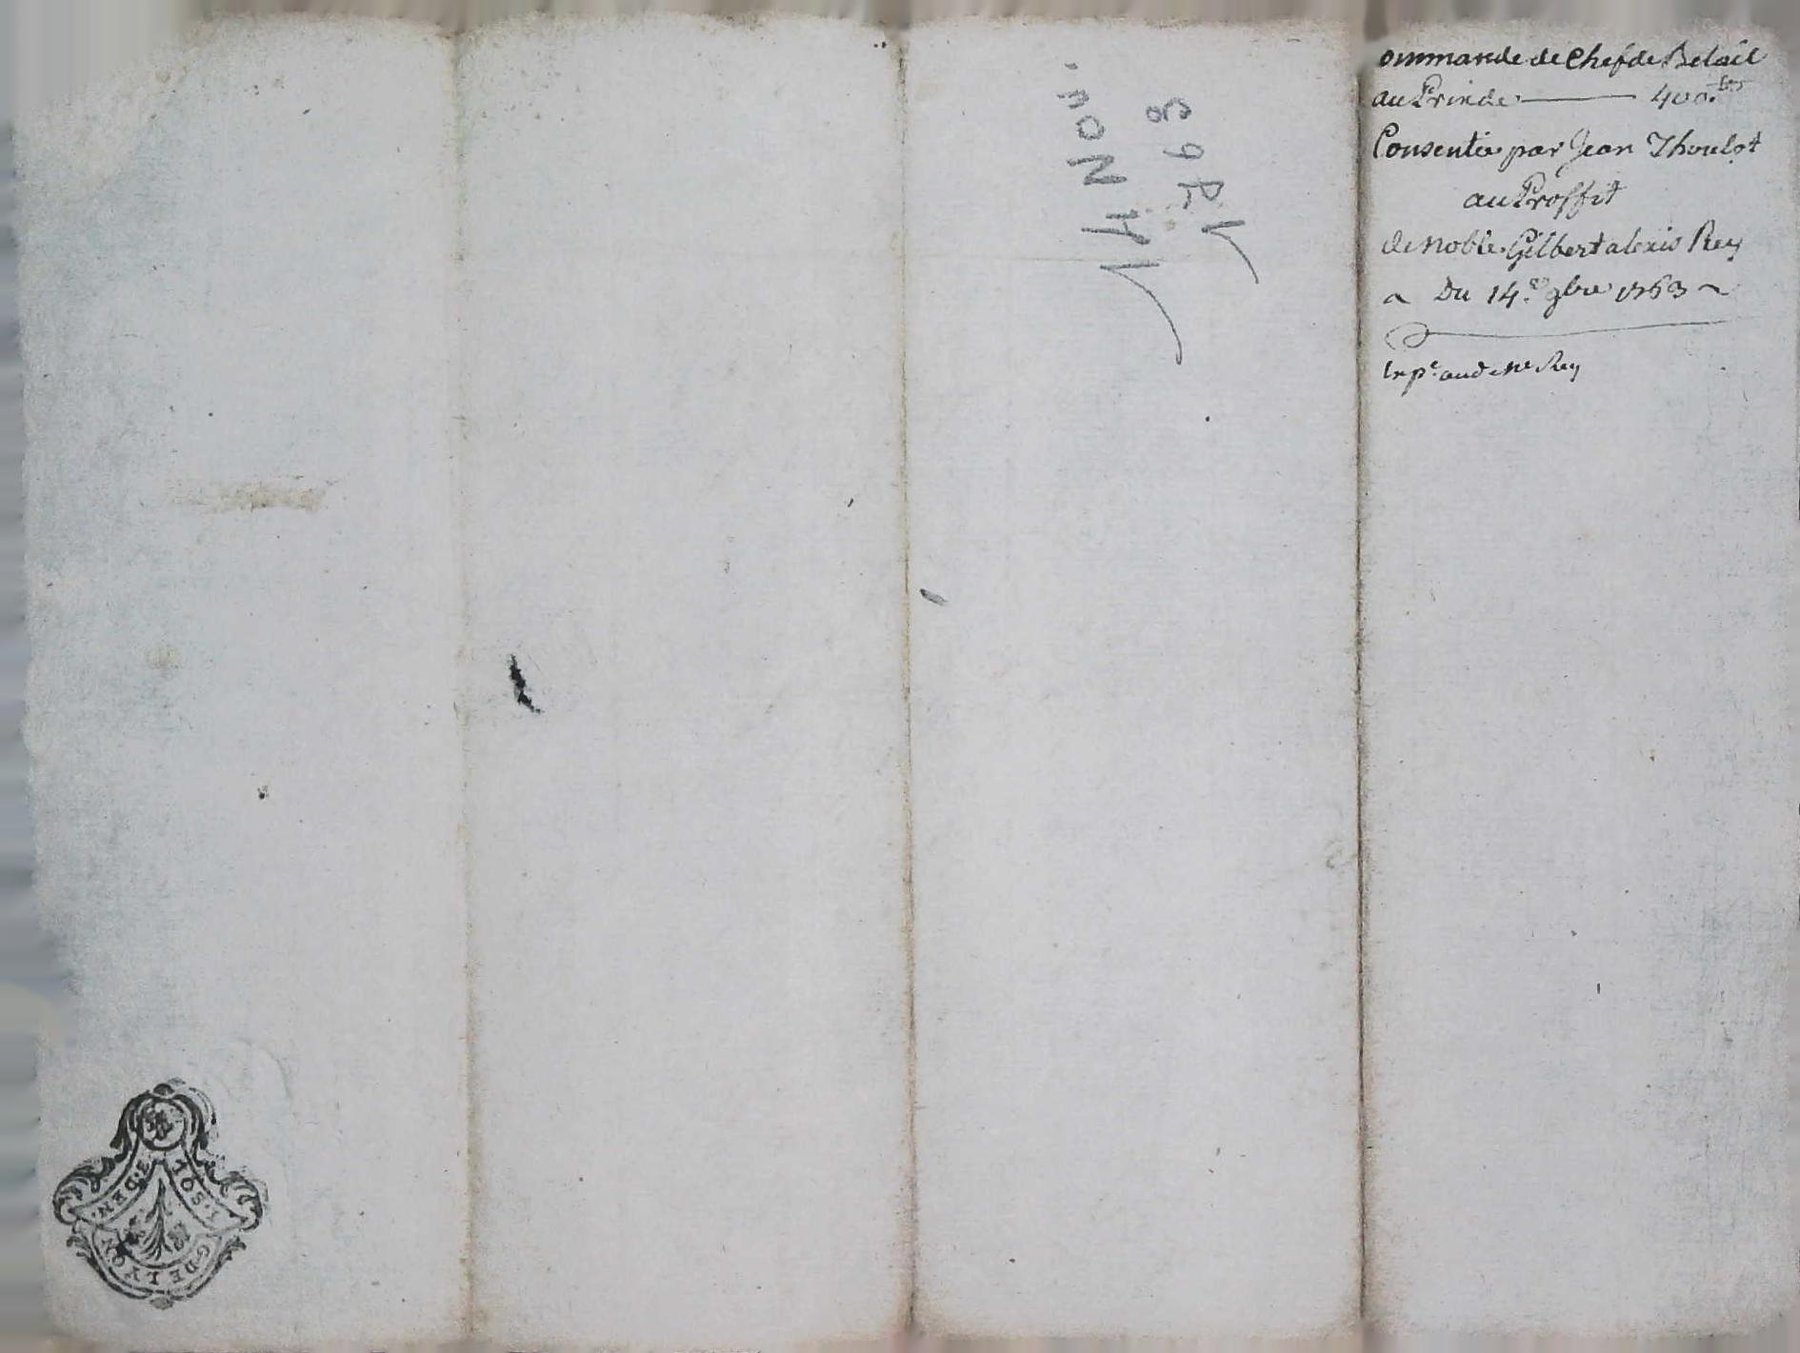 ommande de Chef de Betail
au Prix de ——— 400.ᵗᵗ
Consentie par Jean Thoulot
au Proffit
de noble Gilbert alexis Rey
~ Du 14.ᵉ 9bre 1763 ~
Exp.ᵉ aud. Mᵉ Rey
14 Nov.
1763
1. SOL. 3. DEN.
G. DE LYON